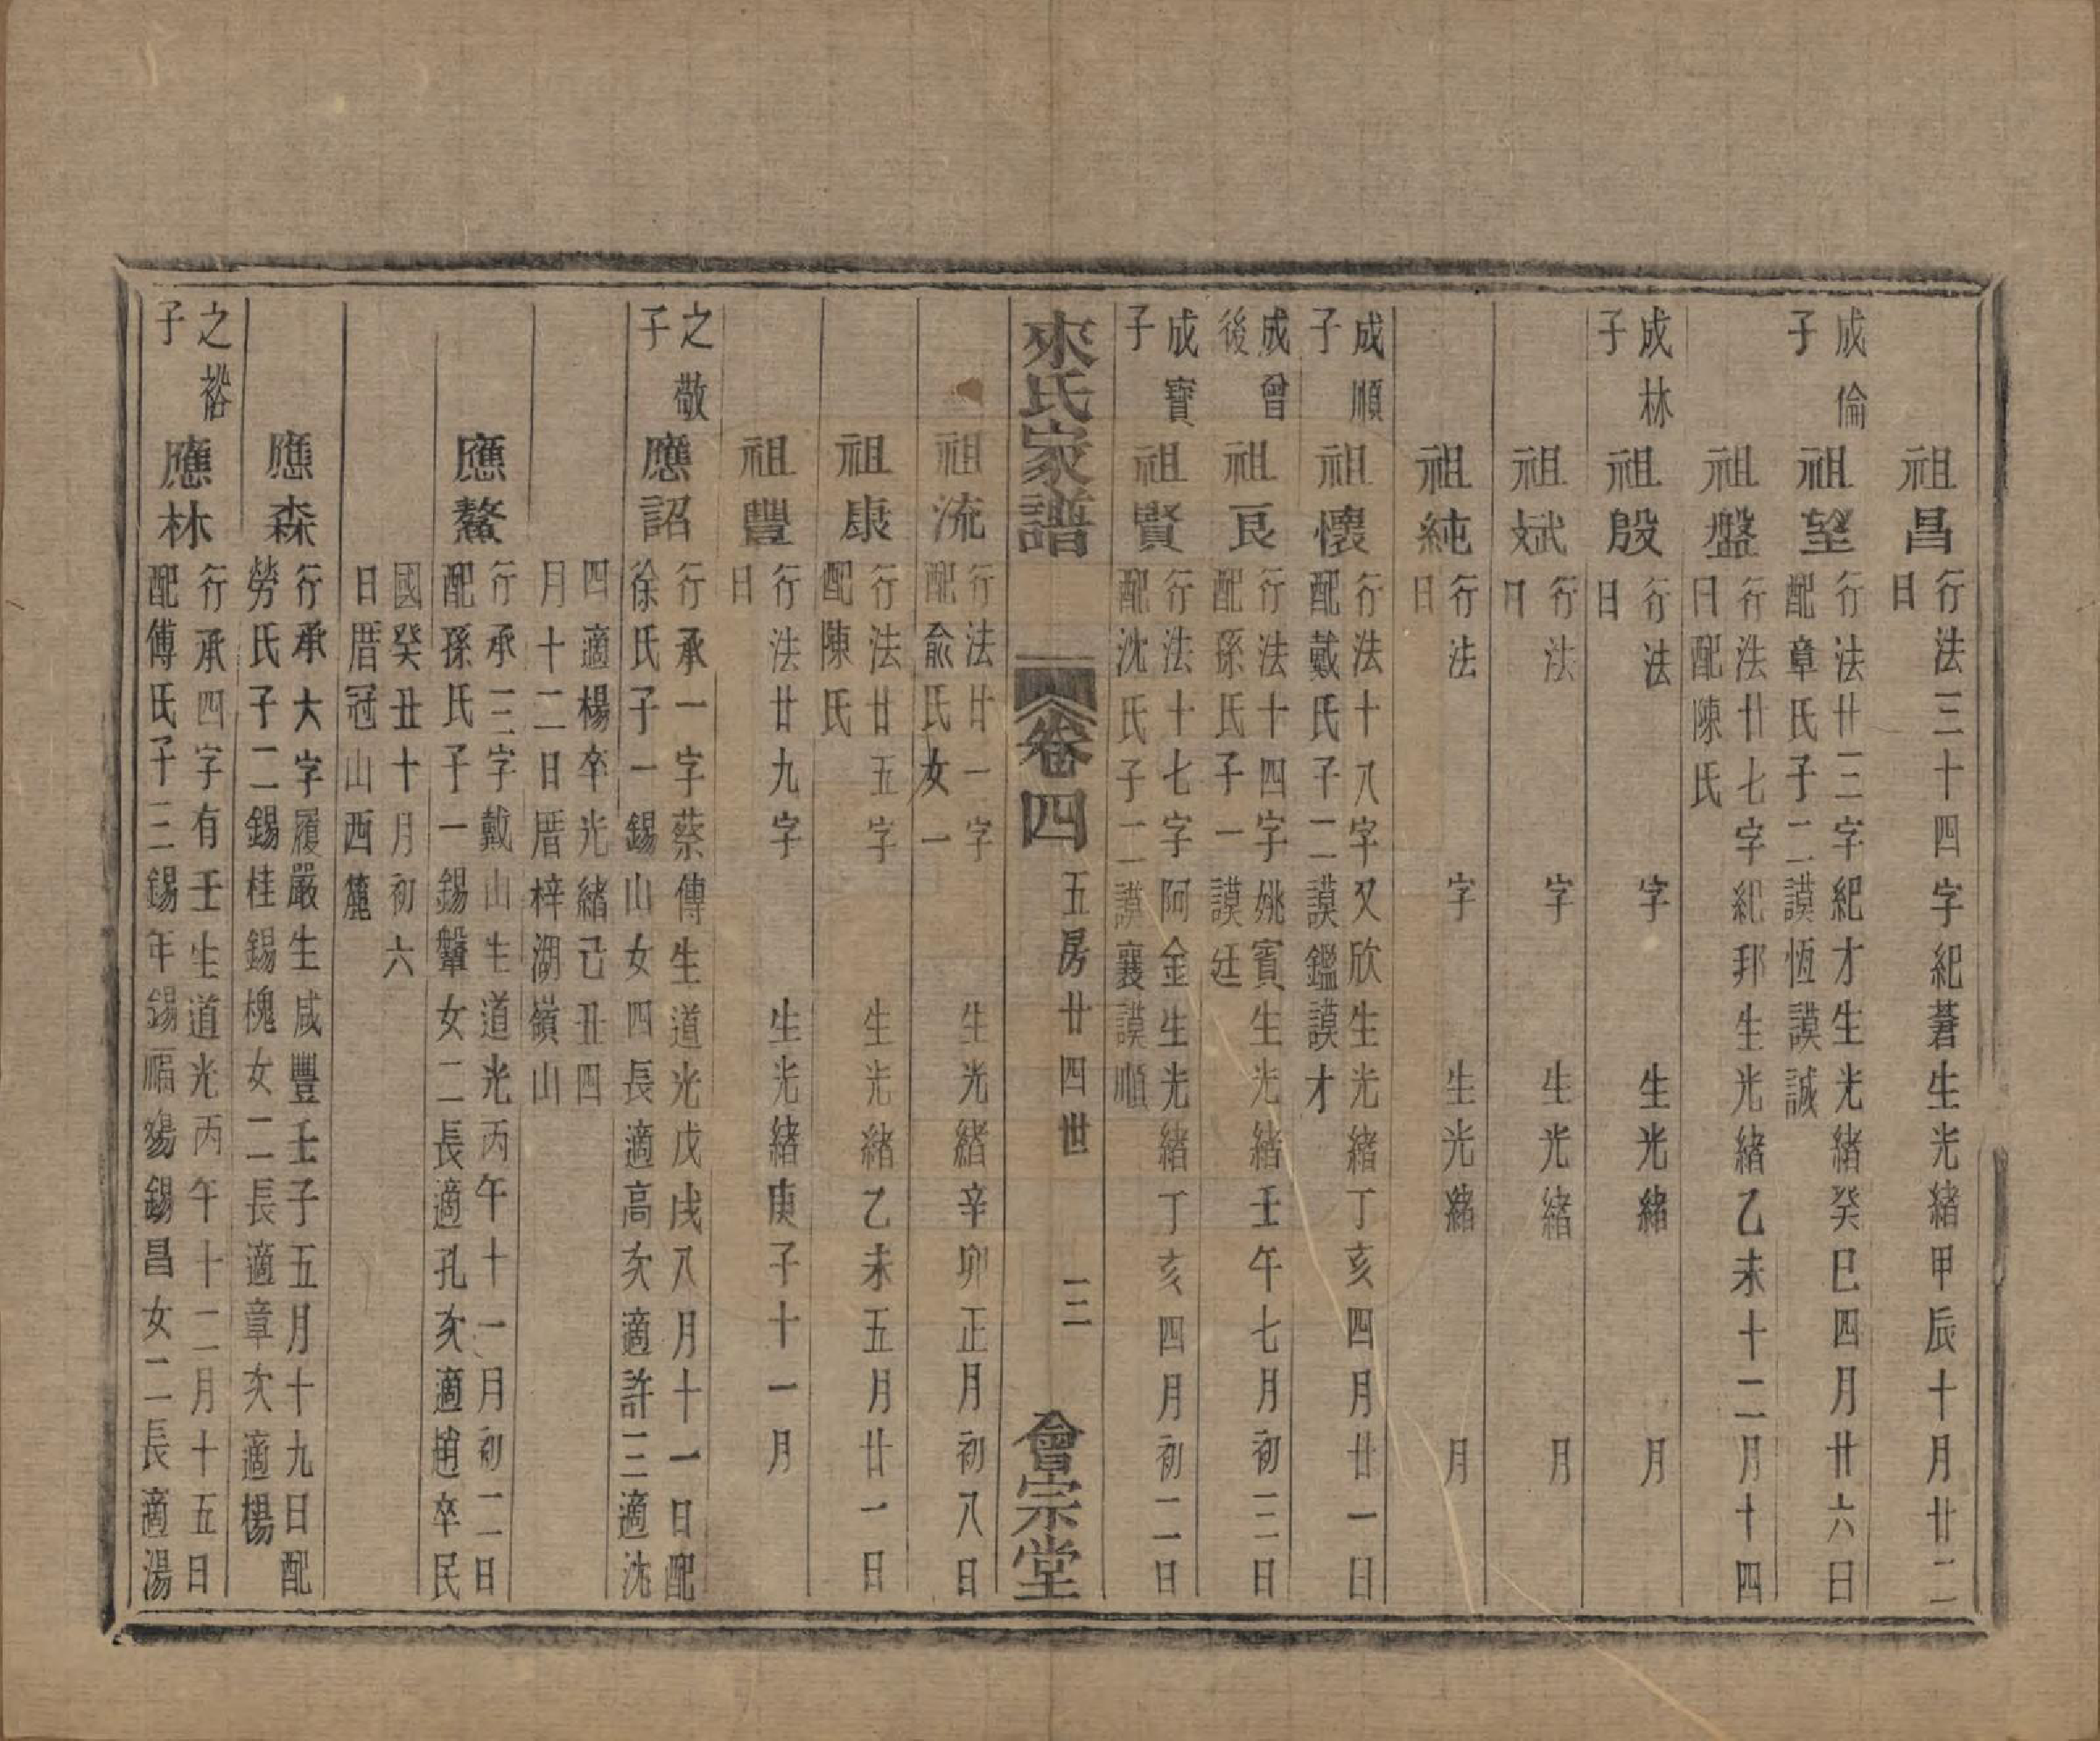 祖昌 行法三十四字紀蒼生光緒甲辰十月廿二
日
成倫
子
祖望 行法廿三字紀才生光緒癸巳四月廿六日
配章氏子二謨恆謨誠
祖盤 行法廿七字紀邦生光緒乙未十二月十四
日配陳氏
成林
子
祖殷 行法 字 生光緒 月
日
祖斌 行法 字 生光緒 月
日
祖純 行法 字 生光緒 月
日
成順
子
祖懷 行法十八字又欣生光緒丁亥四月廿一日
配戴氏子二謨鑑謨才
成曾
後
祖良 行法十四字姚賓生光緒壬午七月初三日
配孫氏子一謨廷
成寶
子
祖賢 行法十七字阿金生光緒丁亥四月初二日
配沈氏子二謨襄謨順
來氏家譜 卷四 五房廿四世 三 會宗堂
祖流 行法廿一字 生光緒辛卯正月初八日
配俞氏女一
祖康 行法廿五字 生光緒乙未五月廿一日
配陳氏
祖豐 行法廿九字 生光緒庚子十一月
日
之敬
子
應詔 行承一字蔡傳生道光戊戌八月十一日配
徐氏子一錫山女四長適高次適許三適沈
四適楊卒光緒己丑四
月十二日厝梓湖嶺山
應鰲 行承三字戴山生道光丙午十一月初二日
配孫氏子一錫鞶女二長適孔次適趙卒民
國癸丑十月初六
日厝冠山西麓
應森 行承大字履嚴生咸豐壬子五月十九日配
勞氏子二錫桂錫槐女二長適章次適楊
之裕
子
應林 行承四字有壬生道光丙午十二月十五日
配傅氏子三錫年錫福錫昌女二長適湯